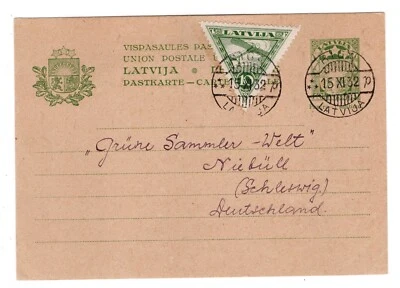 VISPASAULES PAS
UNION POSTALE
LATVIJA
PASTKARTE—CA
LATVIJA
15 XI 32
LATVIJA
15 XI 32
LATVIJA
„Grüne Sammler-Welt"
Niebüll
(Schleswig)
Deutschland.